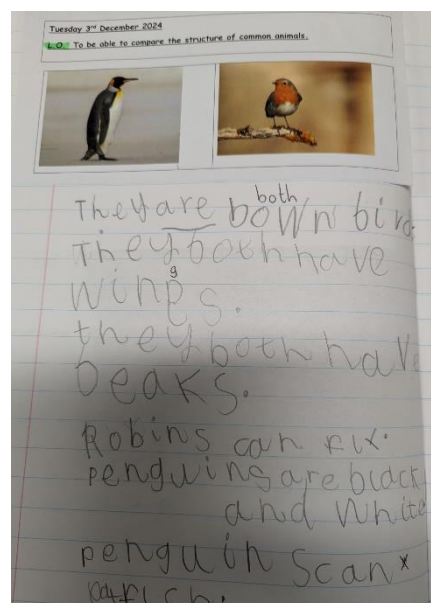 Tuesday 3rd December 2024
L.O. To be able to compare the structure of common animals.
both
They are bown bird
They both have
g
wings.
they both have
beaks.
Robins can flx.
penguins are black
and white
penguin scan x
eat fish.